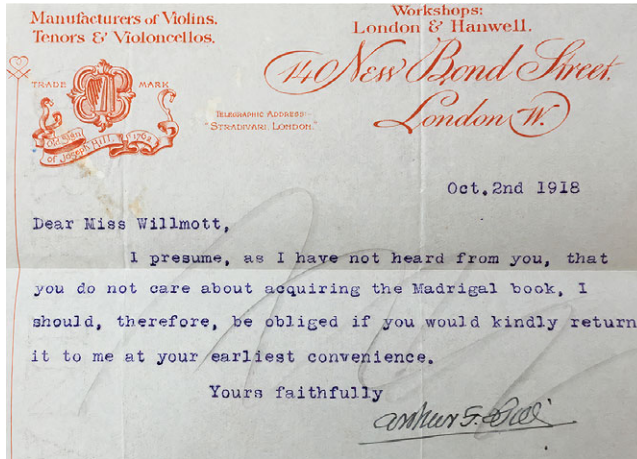 Manufacturers of Violins.
Tenors & Violoncellos.
Workshops:
London & Hanwell.
140 New Bond Street.
London W.
TRADE MARK
Old Sign
of Joseph Hill, 1762
TELEGRAPHIC ADDRESS:-
"STRADIVARI, LONDON."
Oct. 2nd 1918
Dear Miss Willmott,
I presume, as I have not heard from you, that
you do not care about acquiring the Madrigal book, I
should, therefore, be obliged if you would kindly return
it to me at your earliest convenience.
Yours faithfully
Arthur F. Hill